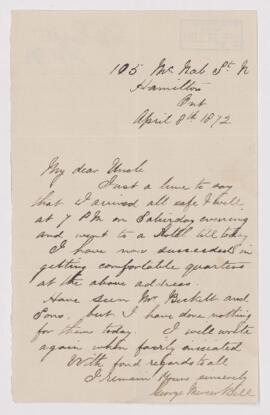 105 McNab St. N
Hamilton
Ont
April 8th 1872
My dear Uncle
Just a line to say
that I arrived all safe & well
at 7 PM on Saturday evening
and went to a Hotel till today
I have now succeeded in
getting comfortable quarters
at the above address.
Have seen Mr and
Sons, but I have done nothing
for them today. I will write
again when fairly initiated
With fond regards to all
I remain Yours sincerely
George Mercer Bell